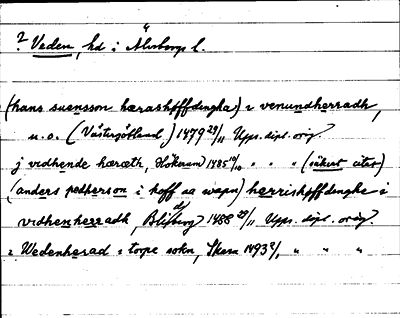 ? Veden, hd i Älvsborgs l.
(hans suensson hærashøffdingha) i venundherradh,
u.o. (Västergötland) 1479 29/11 Upps. dipl. orig.
j vidhende hæræth, Hökerum 1485 19/10 " " " (säkert citat)
(anders pedherson i hoff aa wapn) herrishøffdinghe i
vidhenherradh, Bli(d)sberg 1488 29/11 Upps. dipl. orig.
i Wedenherad i torpe sokn, Skara 1493 2/1 " " "